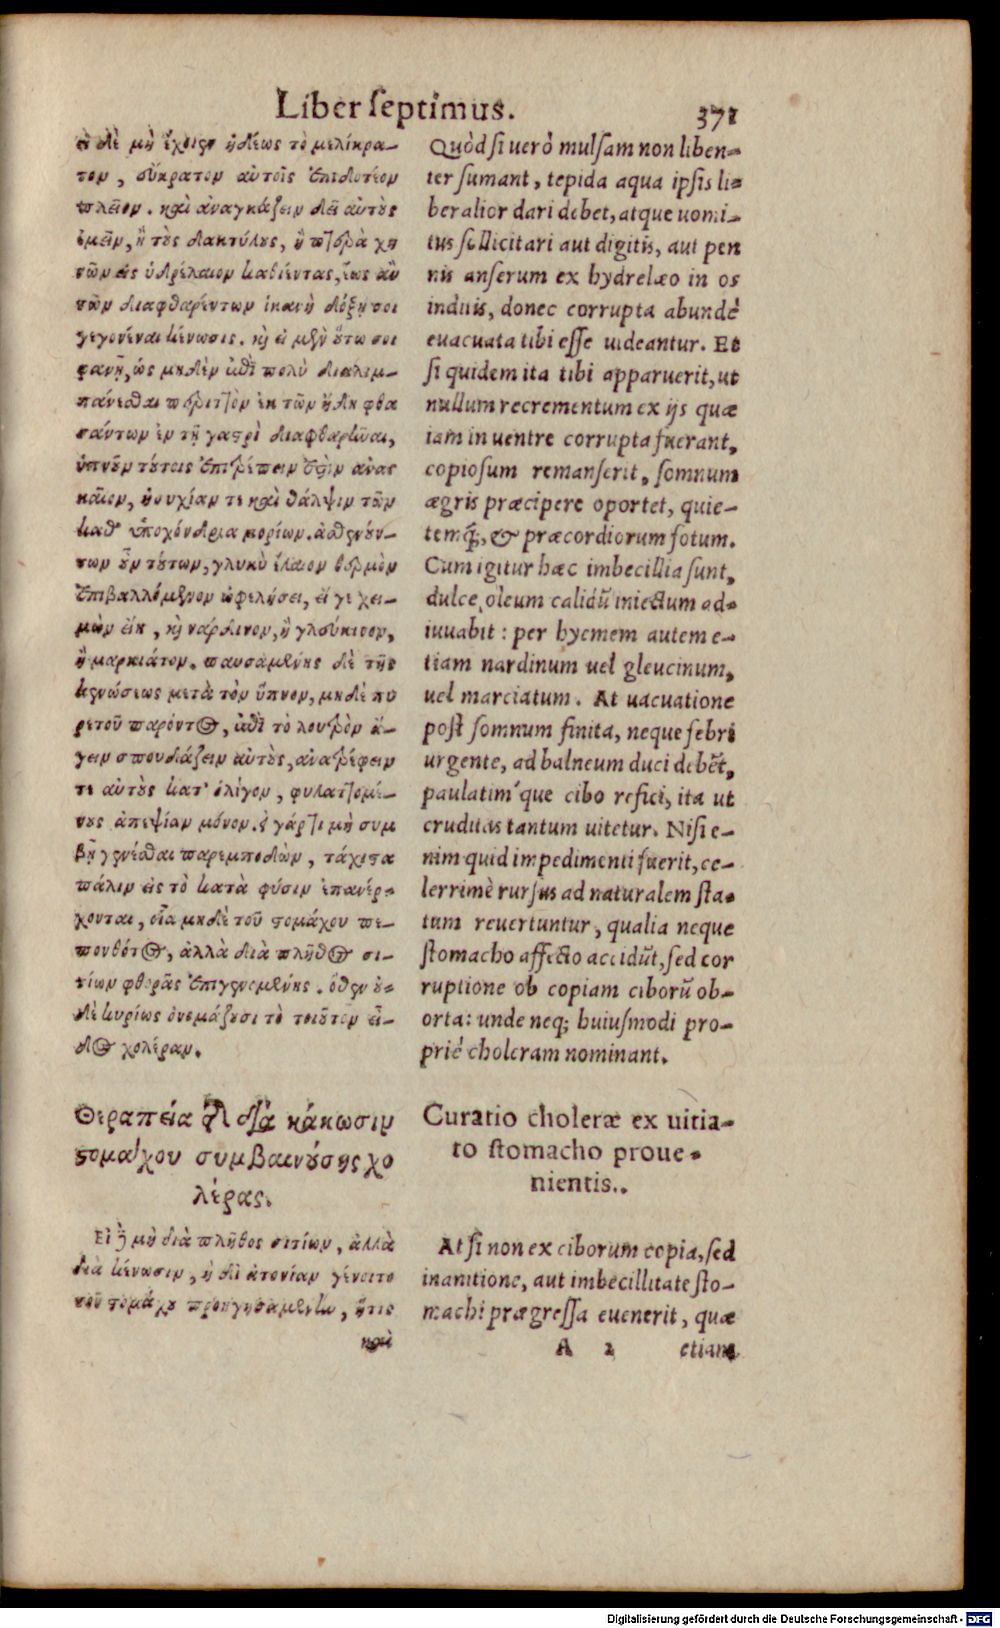 Liber ſeptimus. 371
εἰ δὲ μὴ ἔχοιεν ἡδέως τὸ μελίκρα-
τον, εὔκρατον αὐτοῖς ἐπιδοτέον
πλεῖον. καὶ ἀναγκάζειν δεῖ αὐτοὺς
ἐμεῖν, ἢ τοὺς δακτύλους, ἢ πτερὰ χη
νῶν εἰς ὑδρέλαιον καθιέντας, ἕως ἂν
τῶν διαφθαρέντων ἱκανὴ δόξῃ σοι
γεγονέναι κένωσις. καὶ εἰ μὲν οὕτω σοι
φανῇ, ὡς μηδὲν ἐπὶ πολὺ διαλιμ-
πάνεσθαι περιττὸν ἐκ τῶν ἤδη φθα
σάντων ἐν τῇ γαστρὶ διαφθαρῆναι,
ὑπνοῦν τούτοις ἐπιτρέπειν ἐστὶν ἀναγ
καῖον, ἡσυχίαν τε καὶ θάλψιν τῶν
καθ' ὑποχόνδρια μορίων. ἀσθενούν-
των οὖν τούτων, γλυκὺ ἔλαιον θερμὸν
ἐπιβαλλόμενον ὠφελήσει, εἴ γε χει-
μὼν εἴη, καὶ νάρδινον, ἢ γλεύκινον,
ἢ μαρκιάτον. παυσαμένης δὲ τῆς
κενώσεως μετὰ τὸν ὕπνον, μηδὲ πυ
ρετοῦ παρόντος, ἐπὶ τὸ λουτρὸν ἄ-
γειν σπουδάζειν αὐτοὺς, ἀνατρέφειν
τε αὐτοὺς κατ' ὀλίγον, φυλαττομέ-
νους ἀπεψίαν μόνον. εἰ γάρ τι μὴ συμ
βῇ γενέσθαι παρεμποδὼν, τάχιστα
πάλιν εἰς τὸ κατὰ φύσιν ἐπανέρ-
χονται, οἷα μηδὲ τοῦ στομάχου πε-
πονθότος, ἀλλὰ διὰ πλῆθος σι-
τίων φθορᾶς ἐπιγενομένης. ὅθεν οὐ-
δὲ κυρίως ὀνομάζουσι τὸ τοιοῦτον εἶ-
δος χολέραν.
Θεραπεία τῆς διὰ κάκωσιν
στομάχου συμβαινούσης χο
λέρας.
Εἰ δὲ μὴ διὰ πλῆθος σιτίων, ἀλλὰ
διὰ κένωσιν, ἢ δι' ἀτονίαν γένοιτο
τοῦ στομάχου προηγησαμένην, ἥτις
καὶ
Quòd ſi uerò mulſam non liben-
ter ſumant, tepida aqua ipſis li-
beralior dari debet, atque uomi-
tus ſollicitari aut digitis, aut pen
nis anſerum ex hydrelæo in os
induis, donec corrupta abundè
euacuata tibi eſſe uideantur. Et
ſi quidem ita tibi apparuerit, ut
nullum recrementum ex ijs quæ
iam in uentre corrupta fuerant,
copioſum remanſerit, ſomnum
ægris præcipere oportet, quie-
temq́;, & præcordiorum fotum.
Cum igitur hæc imbecillia ſunt,
dulce oleum calidũ iniectum ad-
iuuabit: per hyemem autem e-
tiam nardinum uel gleucinum,
uel marciatum. At uacuatione
poſt ſomnum finita, neque febri
urgente, ad balneum duci debẽt,
paulatim'que cibo refici, ita ut
cruditas tantum uitetur. Niſi e-
nim quid impedimenti fuerit, ce-
lerrimè rurſus ad naturalem ſta-
tum reuertuntur, qualia neque
ſtomacho affecto accidũt, ſed cor
ruptione ob copiam ciborũ ob-
orta: unde neq; huiuſmodi pro-
priè choleram nominant.
Curatio choleræ ex uitia-
to ſtomacho proue-
nientis.
At ſi non ex ciborum copia, ſed
inanitione, aut imbecillitate ſto-
machi prægreſſa euenerit, quæ
A 2 etiam
Digitalisierung gefördert durch die Deutsche Forschungsgemeinschaft - DFG